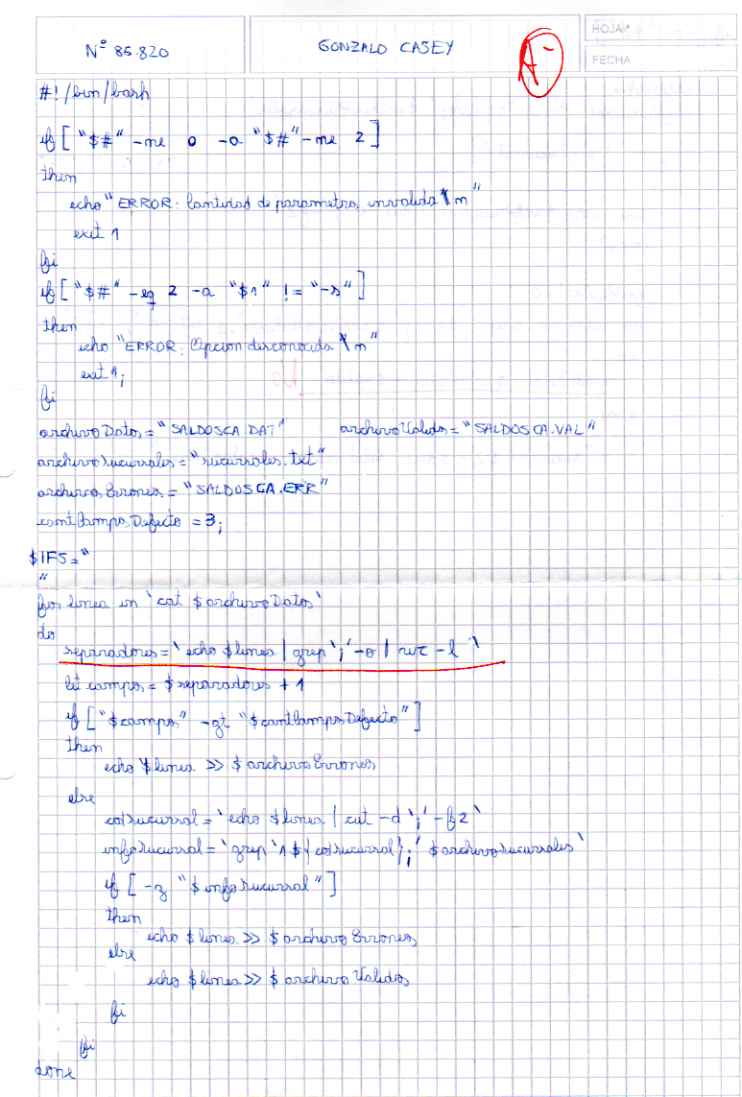 Nº 85.820
GONZALO CASEY
A-
HOJA Nº
FECHA
#!/bin/bash
if [ "$#" -ne 0 -a "$#" -ne 2 ]
then
echo "ERROR: Cantidad de parametros invalida \n"
exit 1
fi
if [ "$#" -eq 2 -a "$1" != "-s" ]
then
echo "ERROR. Opcion desconocida \n"
exit 1;
fi
archivoDatos="SALDOSCA.DAT" archivoValidos="SALDOSCA.VAL"
archivoSucursales="sucursales.txt"
archivosErrores="SALDOSCA.ERR"
cantCamposDefecto=3;
$IFS="
"
for linea in `cat $archivoDatos`
do
separadores=`echo $linea | grep ';' -o | wc -l`
let campos=$separadores + 1
if ["$campos" -gt "$cantCamposDefecto"]
then
echo $linea >> $archivoErrores
else
codSucursal=`echo $linea | cut -d ';' -f2`
infoSucursal=`grep '^${codSucursal};' $archivoSucursales`
if [ -z "$infoSucursal" ]
then
echo $linea >> $archivoErrores
else
echo $linea >> $archivoValidos
fi
fi
done